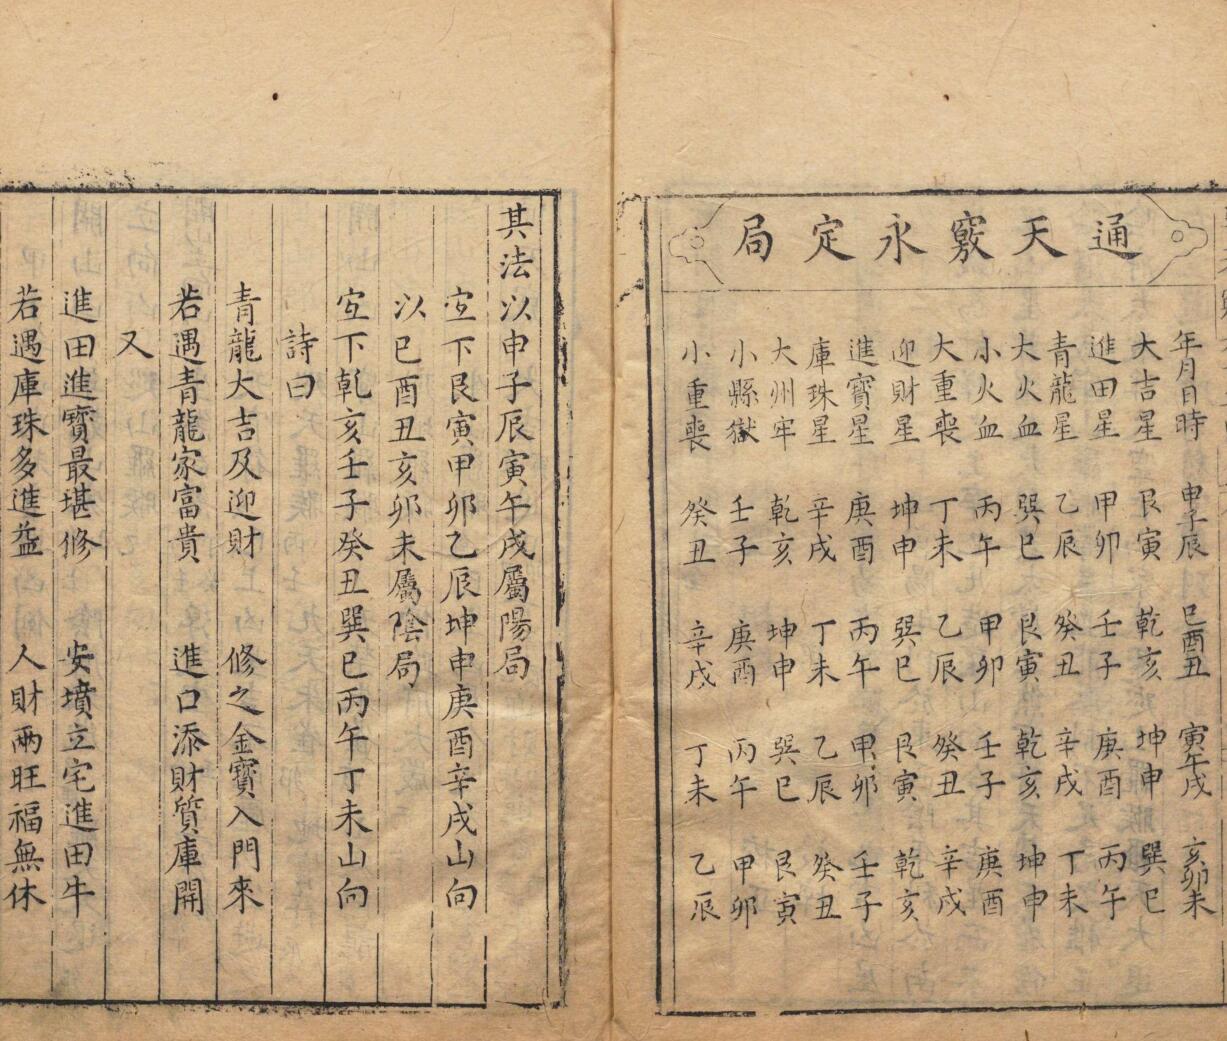 通天竅永定局
年月日時 申子辰 巳酉丑 寅午戌 亥卯未
大吉星 艮寅 乾亥 坤申 巽巳
進田星 甲卯 壬子 庚酉 丙午
青龍星 乙辰 癸丑 辛戌 丁未
大火血 巽巳 艮寅 乾亥 坤申
小火血 丙午 甲卯 壬子 庚酉
大重喪 丁未 乙辰 癸丑 辛戌
迎財星 坤申 巽巳 艮寅 乾亥
進寶星 庚酉 丙午 甲卯 壬子
庫珠星 辛戌 丁未 乙辰 癸丑
大州牢 乾亥 坤申 巽巳 艮寅
小縣獄 壬子 庚酉 丙午 甲卯
小重喪 癸丑 辛戌 丁未 乙辰
其法以申子辰寅午戌屬陽局
宜下艮寅甲卯乙辰坤申庚酉辛戌山向
以巳酉丑亥卯未屬陰局
宜下乾亥壬子癸丑巽巳丙午丁未山向
詩曰
青龍大吉及迎財 修之金寶入門來
若遇青龍家富貴 進口添財質庫開
又
進田進寶最堪修 安墳立宅進田牛
若遇庫珠多進益 人財兩旺福無休